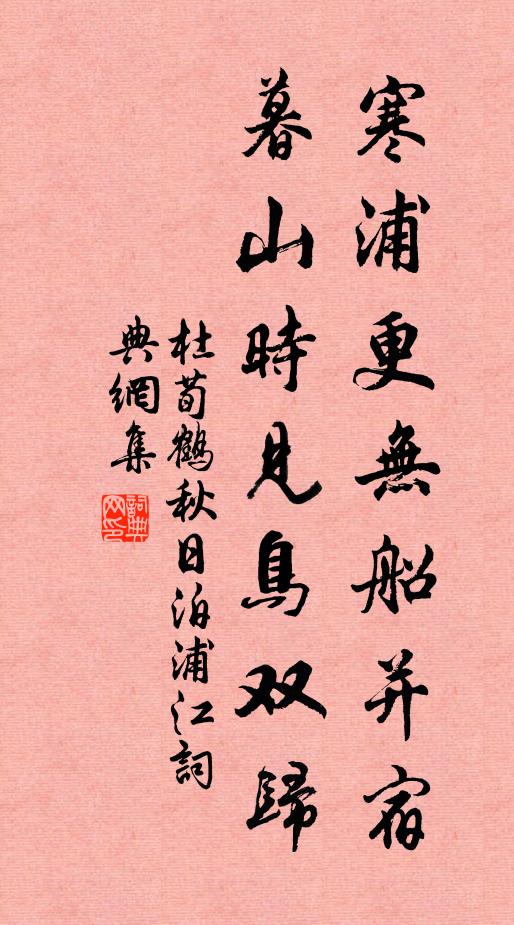 寒浦更無船并宿
暮山時見鳥双歸
杜荀鶴秋日泊浦江詞
典網集
詞典
网印